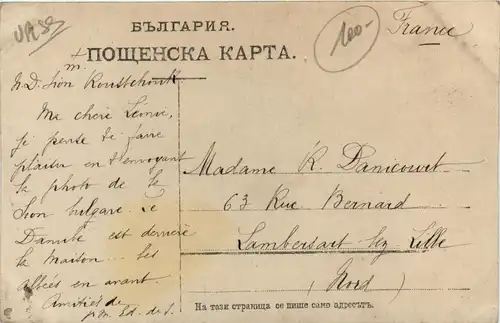 БЪЛГАРИЯ.
ПОЩЕНСКА КАРТА.
100-
France
N.D. Sion Roustchouk
Ma chère Léonie,
je pense te faire
plaisir en t'envoyant
la photo de
Sion bulgare. Le
Danube est derrière
la maison... les
allées en avant.
Amitiés de
Madame R. Danicourt
63 Rue Bernard
Lambersart lez Lille
(Nord)
На тази страница се пише само адресътъ.